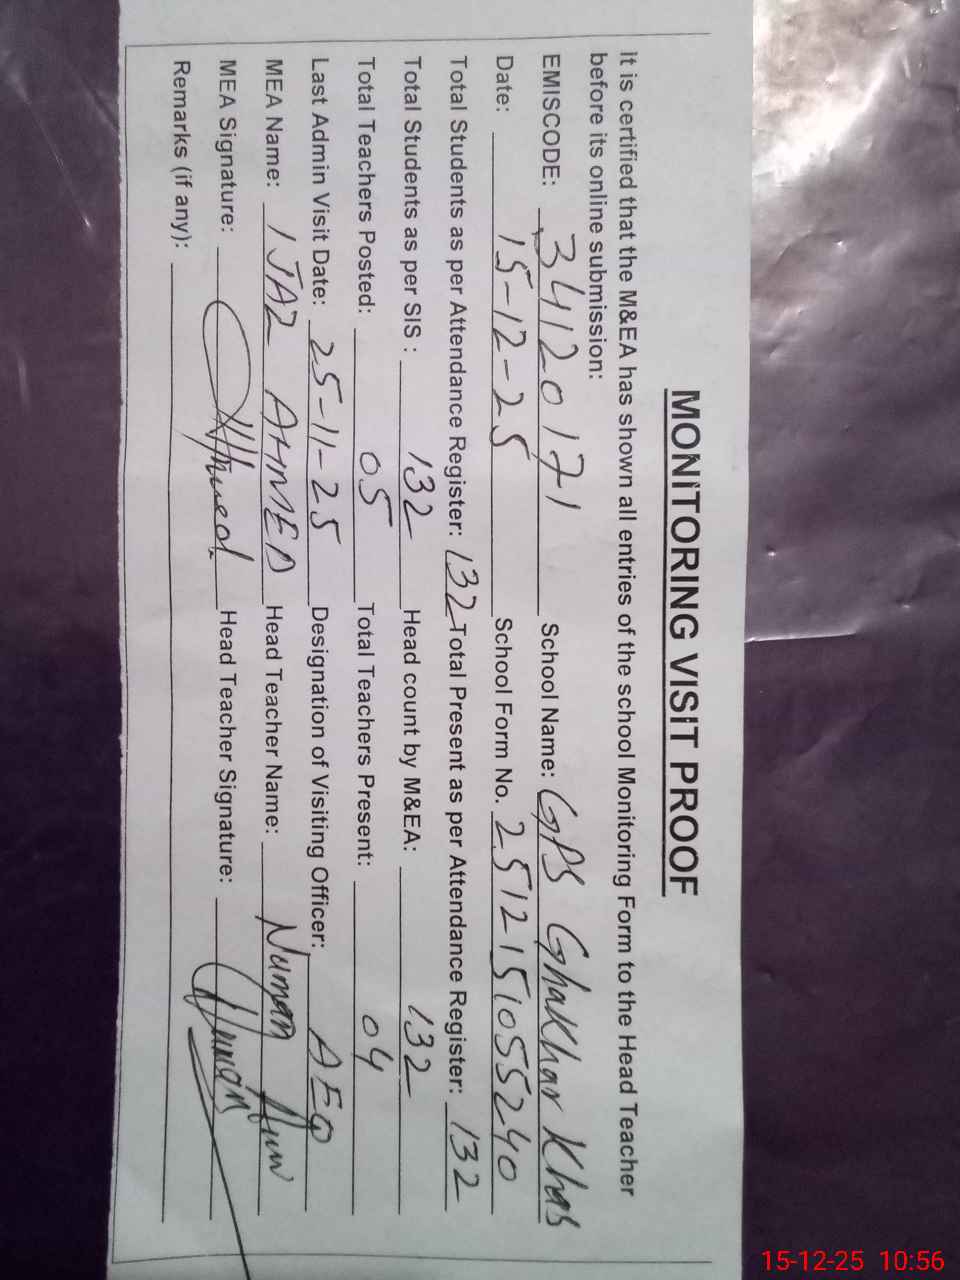 MONITORING VISIT PROOF
It is certified that the M&EA has shown all entries of the school Monitoring Form to the Head Teacher
before its online submission:
EMISCODE: 34120171 School Name: GPS Ghakhar Khas
Date: 15-12-25 School Form No. 2512151055240
Total Students as per Attendance Register: 132 Total Present as per Attendance Register: 132
Total Students as per SIS : 132 Head count by M&EA: 132
Total Teachers Posted: 05 Total Teachers Present: 04
Last Admin Visit Date: 25-11-25 Designation of Visiting Officer: AEO
MEA Name: IJAZ AHMED Head Teacher Name: Numan
MEA Signature: Ahmed Head Teacher Signature: Numan
Remarks (if any):
15-12-25 10:56